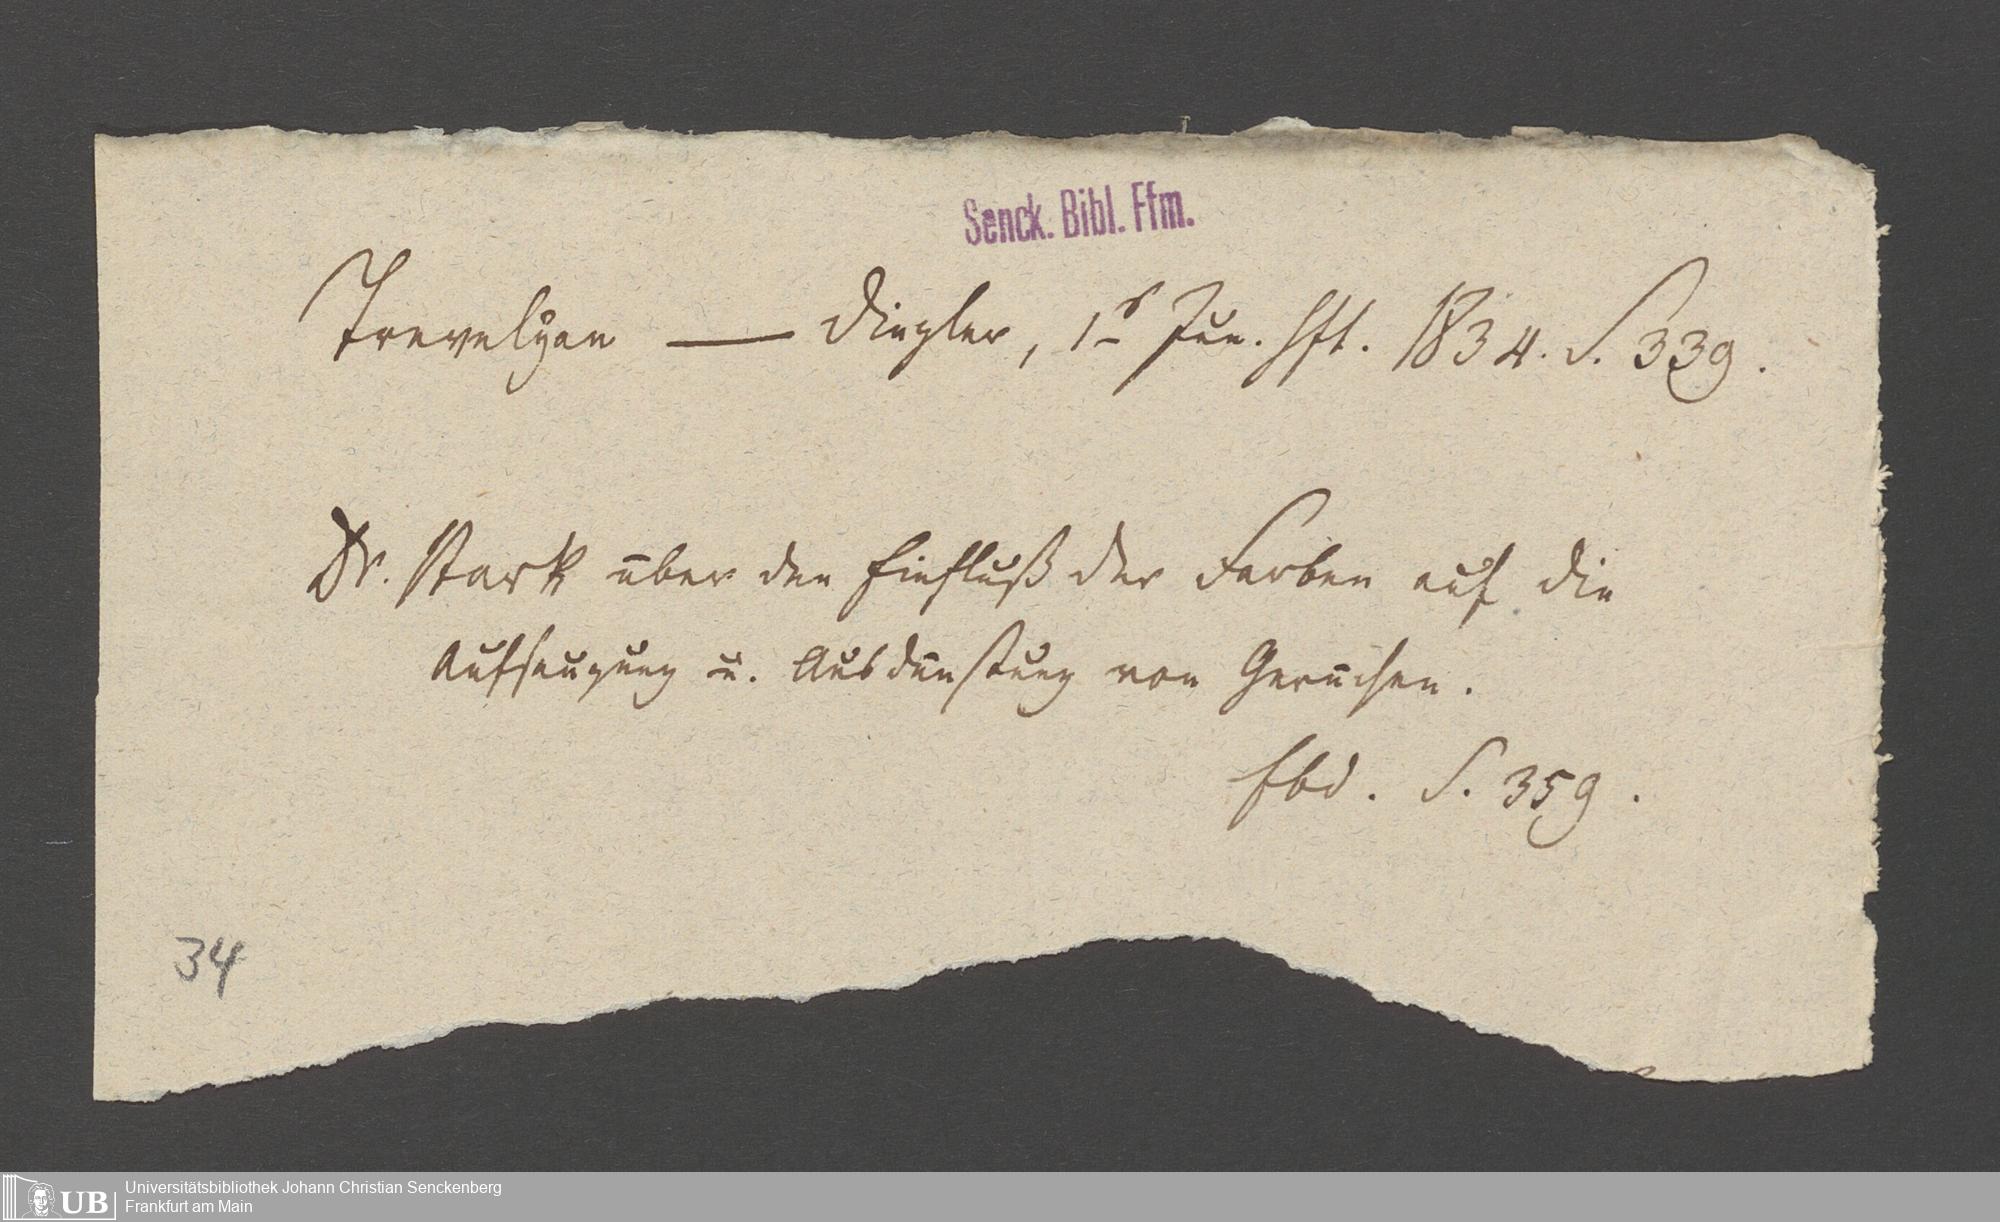 Senck. Bibl. Ffm.
Trevelÿan — Dingler, 1s Jun. Hft. 1834. S. 339.
Dr. Stark über den Einfluß der Farben auf die
Aufsaugung u. Ausdünstung von Gerüchen.
Ebd. S. 359.
34
UB
Universitätsbibliothek Johann Christian Senckenberg
Frankfurt am Main